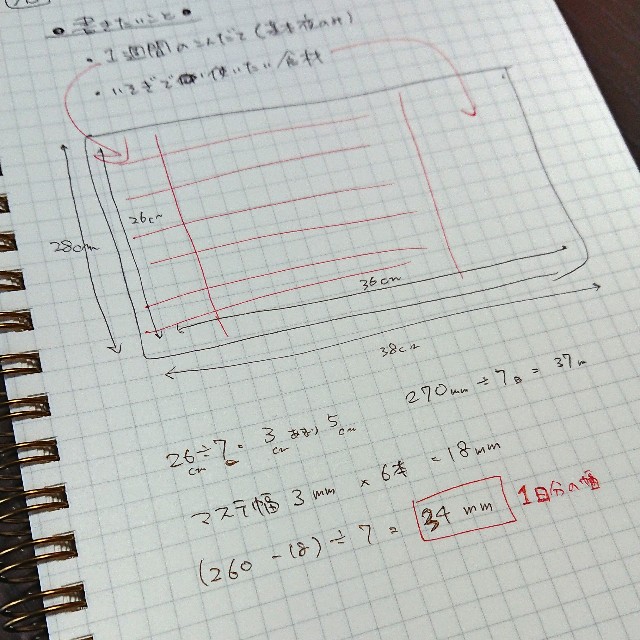 ・書きたいこと・
・1週間のこんだて
・いそぎで使いたい食材
28cm
26cm
36cm
38cm
270mm ÷ 7日 = 37m
26cm ÷ 7日 = 3cmあまり5cm
マステ幅 3mm × 6本 = 18mm
(260 - 18) ÷ 7 = 34mm
1日分の幅